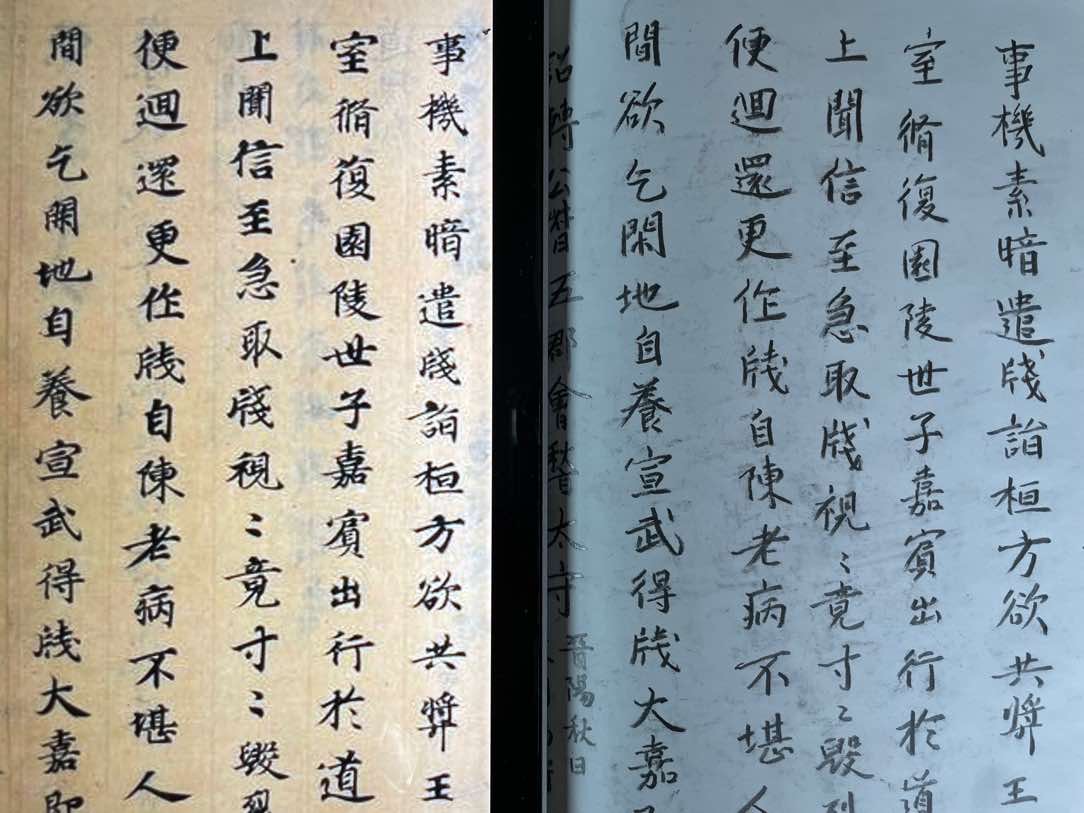 事機素暗遣牋詣桓方欲共奬王
室脩復園陵世子嘉賓出行於道
上聞信至急取牋視〻竟寸〻毀裂
便迴還更作牋自陳老病不堪人
間欲乞閑地自養宣武得牋大嘉即
事機素暗遣牋詣桓方欲共奬王
室脩復園陵世子嘉賓出行於道
上聞信至急取牋視〻竟寸〻毀
便迴還更作牋自陳老病不堪人
間欲乞閑地自養宣武得牋大嘉
詔轉公督五郡會稽太守
晉陽秋曰